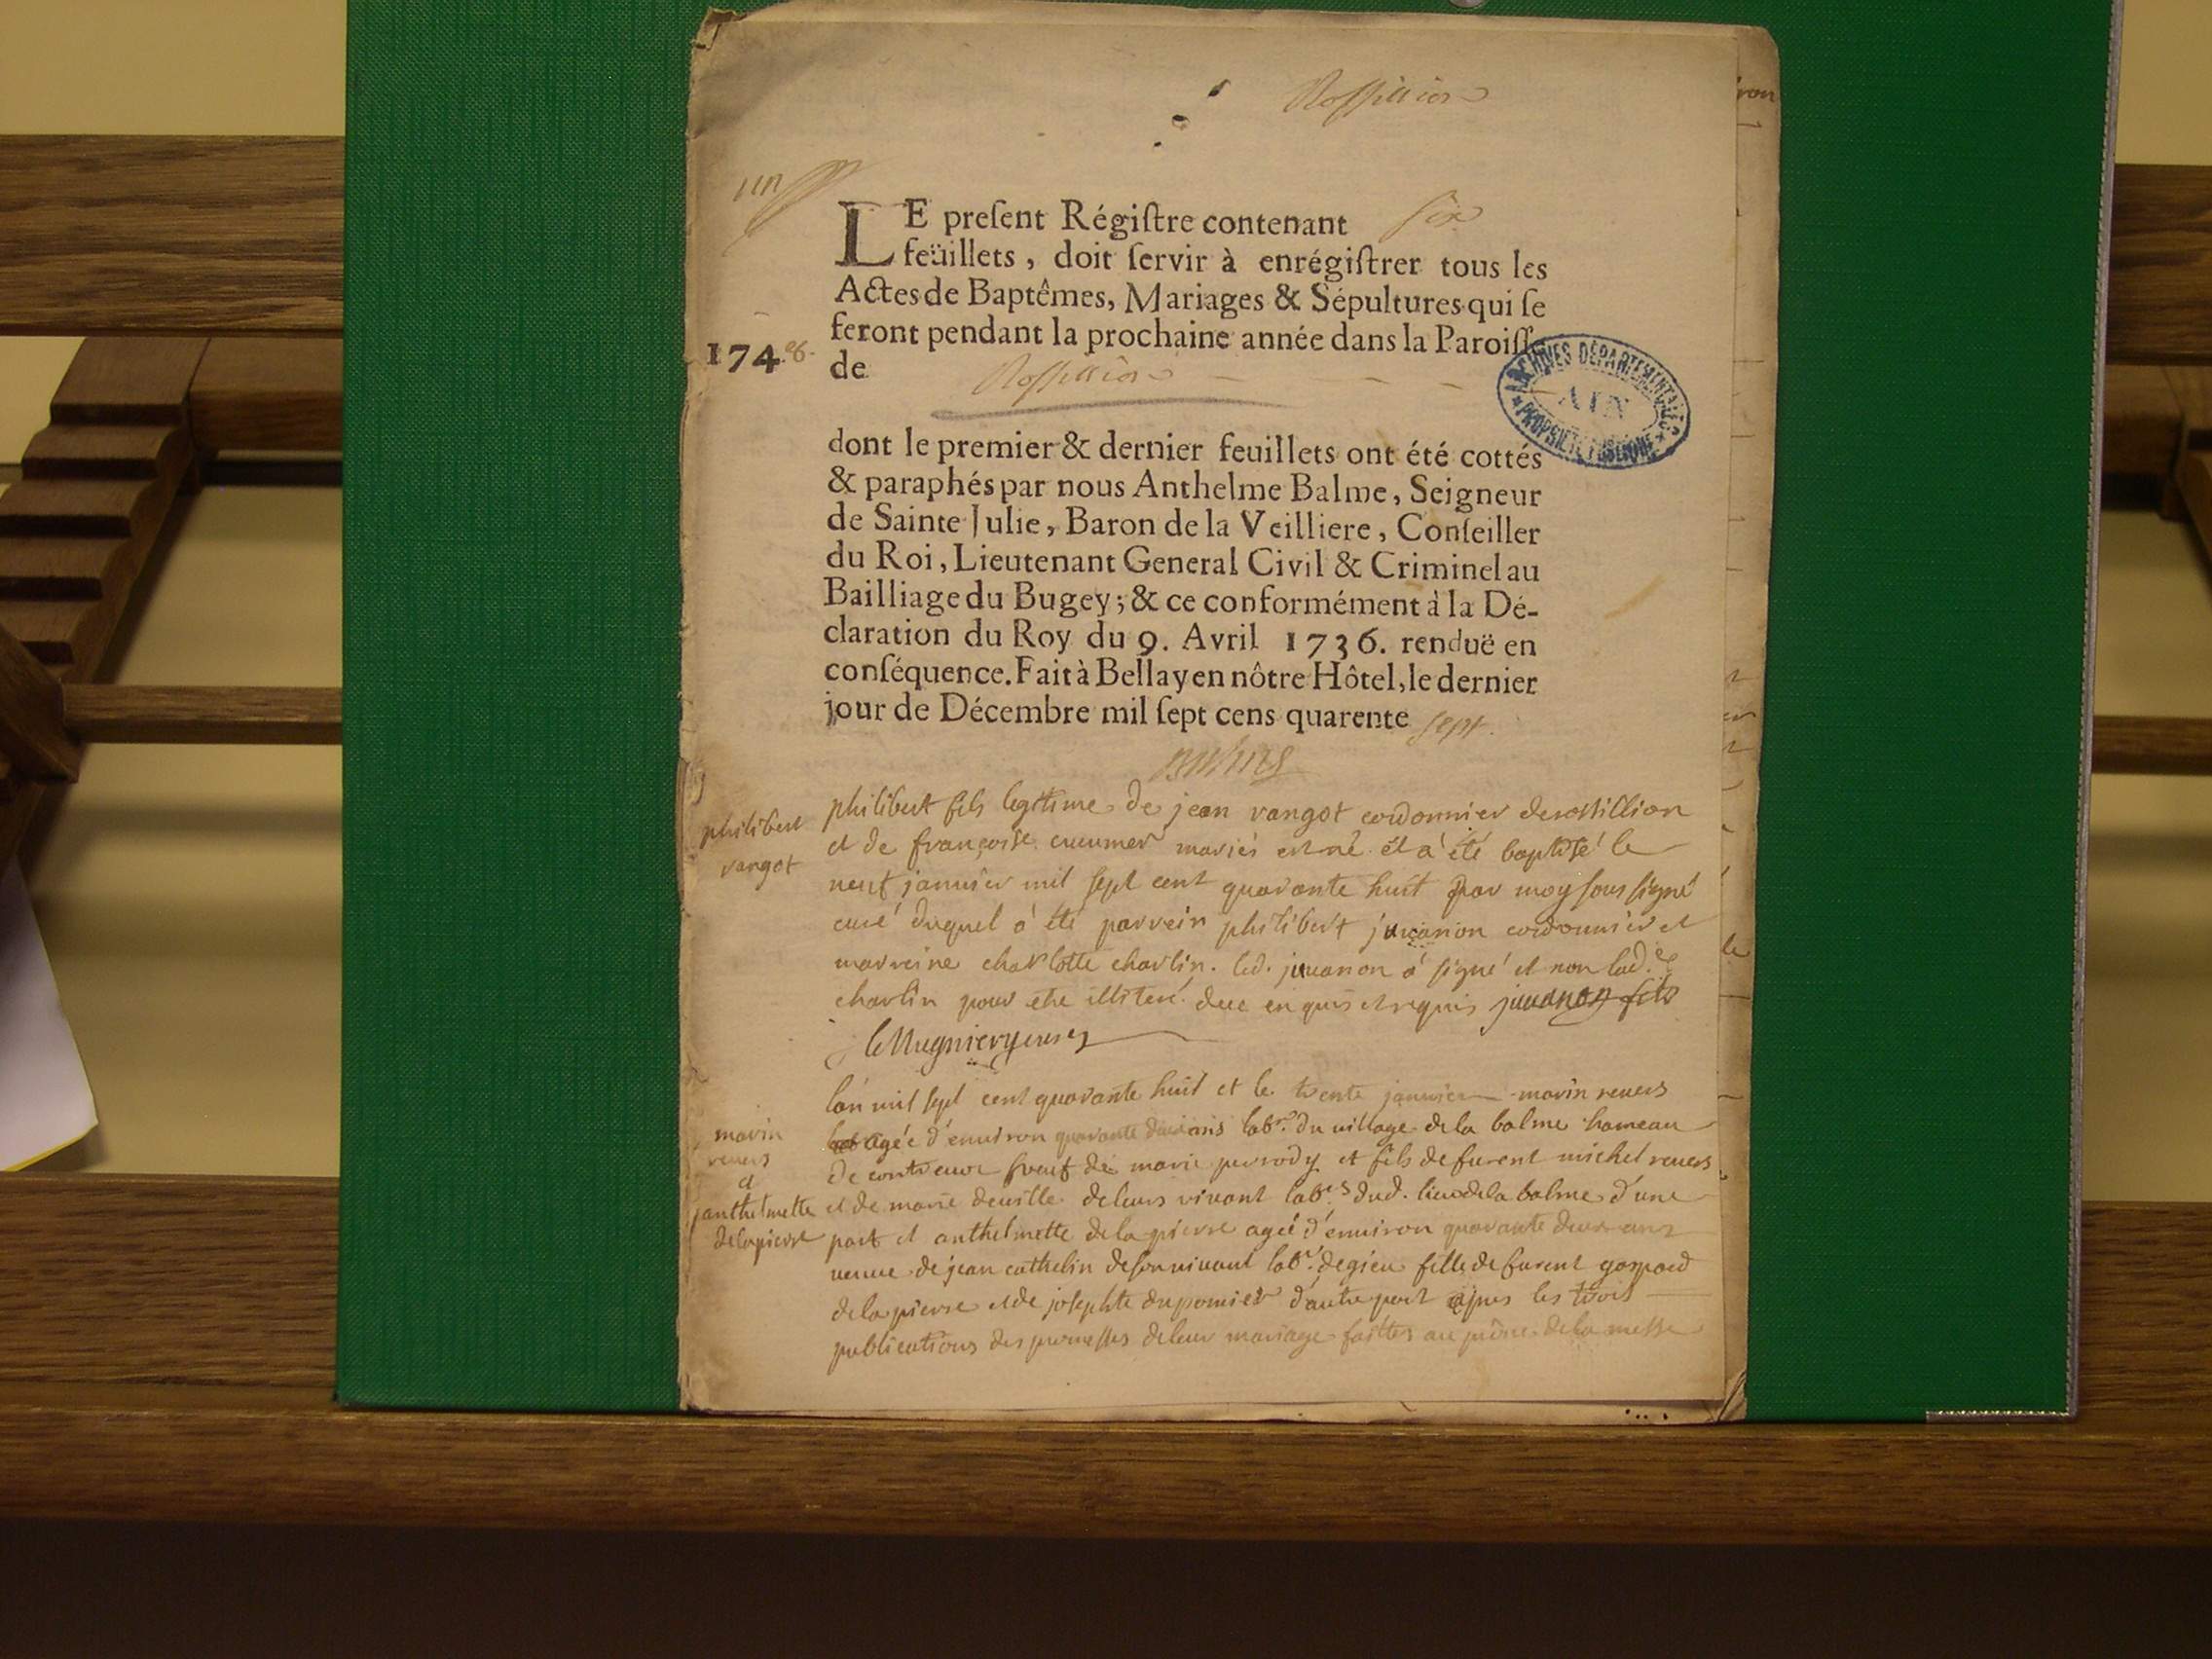 Rossillion
un
LE present Régistre contenant six
feüillets, doit servir à enrégistrer tous les
Actes de Baptêmes, Mariages & Sépultures qui se
feront pendant la prochaine année dans la Paroisse
174
de Rossillion
ARCHIVES DÉPARTEMENTALES
AIN
PROPRIÉTÉ PUBLIQUE
dont le premier & dernier feuillets ont été cottés
& paraphés par nous Anthelme Balme, Seigneur
de Sainte Julie, Baron de la Veilliere, Conseiller
du Roi, Lieutenant General Civil & Criminel au
Bailliage du Bugey; & ce conformément à la Dé-
claration du Roy du 9. Avril 1736. renduë en
conséquence. Fait à Bellay en nôtre Hôtel, le dernier
jour de Décembre mil sept cens quarente sept.
philibert
vangot
philibert fils legitime de jean vangot cordonnier de rossillion
et de françoise mariés est né et a été baptisé le
neuf janvier mil sept cent quarante huit par moy sous signé
curé duquel a été parrein philibert juvanon cordonnier et
marreine charlotte charlin. led. juvanon a signé et non lad.e
charlin pour etre illiteré due enquis et requis juvanon fils
marin
reuers
et
anthelmette
delapierre
lan mil sept cent quarante huit et le trente janvier marin reuers
agée d'environ quarante ans labr. du village de la balme hameau
de veuf de marie perrody et fils de furent michel reuers
et de marie deville de leurs vivant labrs dud. lieu de la balme d'une
part et anthelmette de la pierre agée d'environ quarante deux ans
veuve de jean cathelin de son vivant labr. de gieu fille de furent gaspard
de la pierre et de josephte dupomier d'autre part apres les trois
publications des promesses de leur mariage faittes au prône de la messe